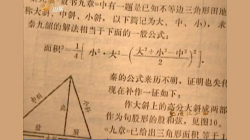 数书九章=中有一题是已知不等边三角形田地
称大斜、中斜、小斜,以下简记为大、中、小),求
秦九韶的解法相当于下面的一般公式:
面积²=1/4[小²·大²-(大²+小²-中²/2)²].
秦的公式来历不明,证明也失传
现在补作一证如下.
作大斜上的高分大斜成两部
作为勾股形的股和弦,见图16.
=九章=已给出三角形面积等于